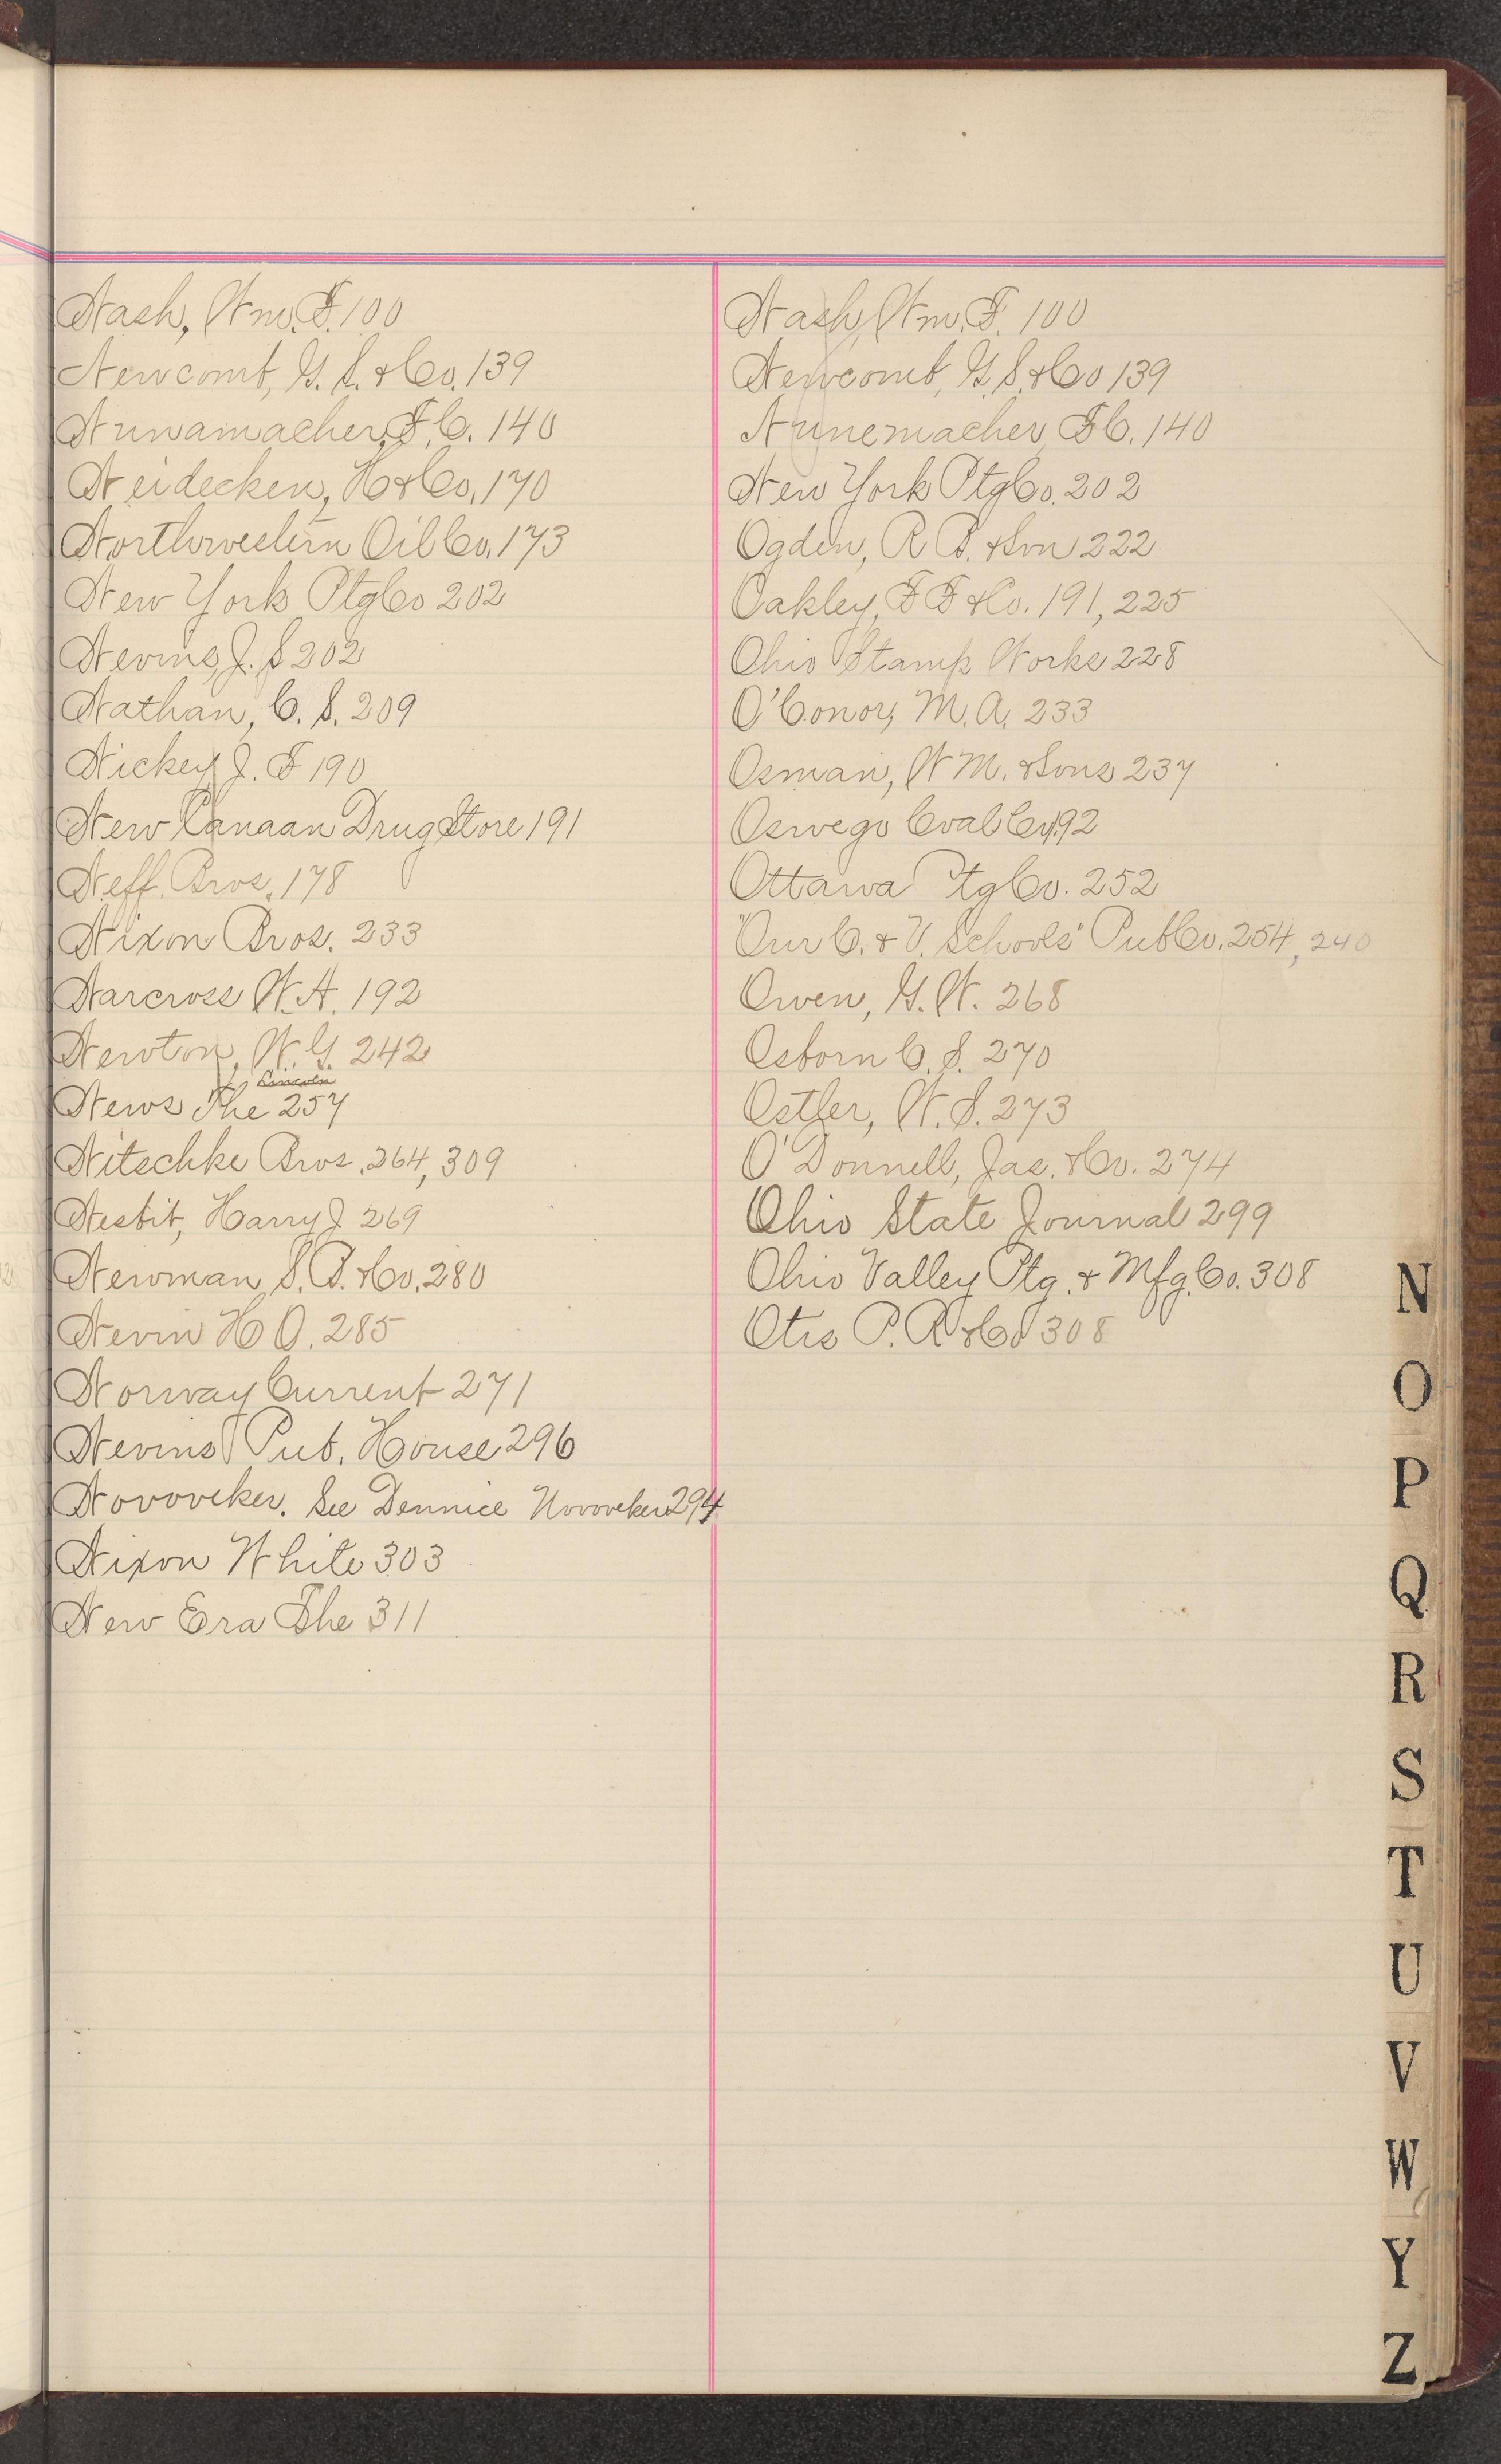 Nash, Wm. F. 100
Newcomb, G. S. & Co. 139
Nunamacher, F. C. 140
Neidecken, H & Co. 170
Northwestern Oil Co. 173
New York Ptg Co 202
Nevins, J. S 202
Nathan, C. S. 209
Nickey J. F 190
New Canaan Drug Store 191
Neff Bros. 178
Nixon Bros. 233
Narcross W. H. 192
Newton, W. G. 242
Lincoln
News The 257
Nitschke Bros. 264, 309
Nesbit, Harry J 269
Newman S. B. & Co. 280
Nevin H O. 285
Norway Current 271
Nevins Pub. House 296
Novoveker. See Dennice Novoveker 294
Nixon White 303
New Era The 311
Nash, Wm. F. 100
Newcomb, G. S. & Co 139
Nunemacher, F C. 140
New York Ptg Co. 202
Ogden, R B. & Son 222
Oakley, F F & Co. 191, 225
Ohio Stamp Works 228
O'Conor, M. A. 233
Osman, W M. & Sons 237
Oswego Coal Co 192
Ottawa Ptg Co. 252
"Our C. & V. Schools" Pub Co. 254, 240
Owen, G. W. 268
Osborn C. S. 270
Ostler, W. S. 273
O'Donnell, Jas. & Co. 274
Ohio State Journal 299
Ohio Valley Ptg. & Mfg. Co. 308
Otis P. R & Co 308
N
O
P
Q
R
S
T
U
V
W
Y
Z